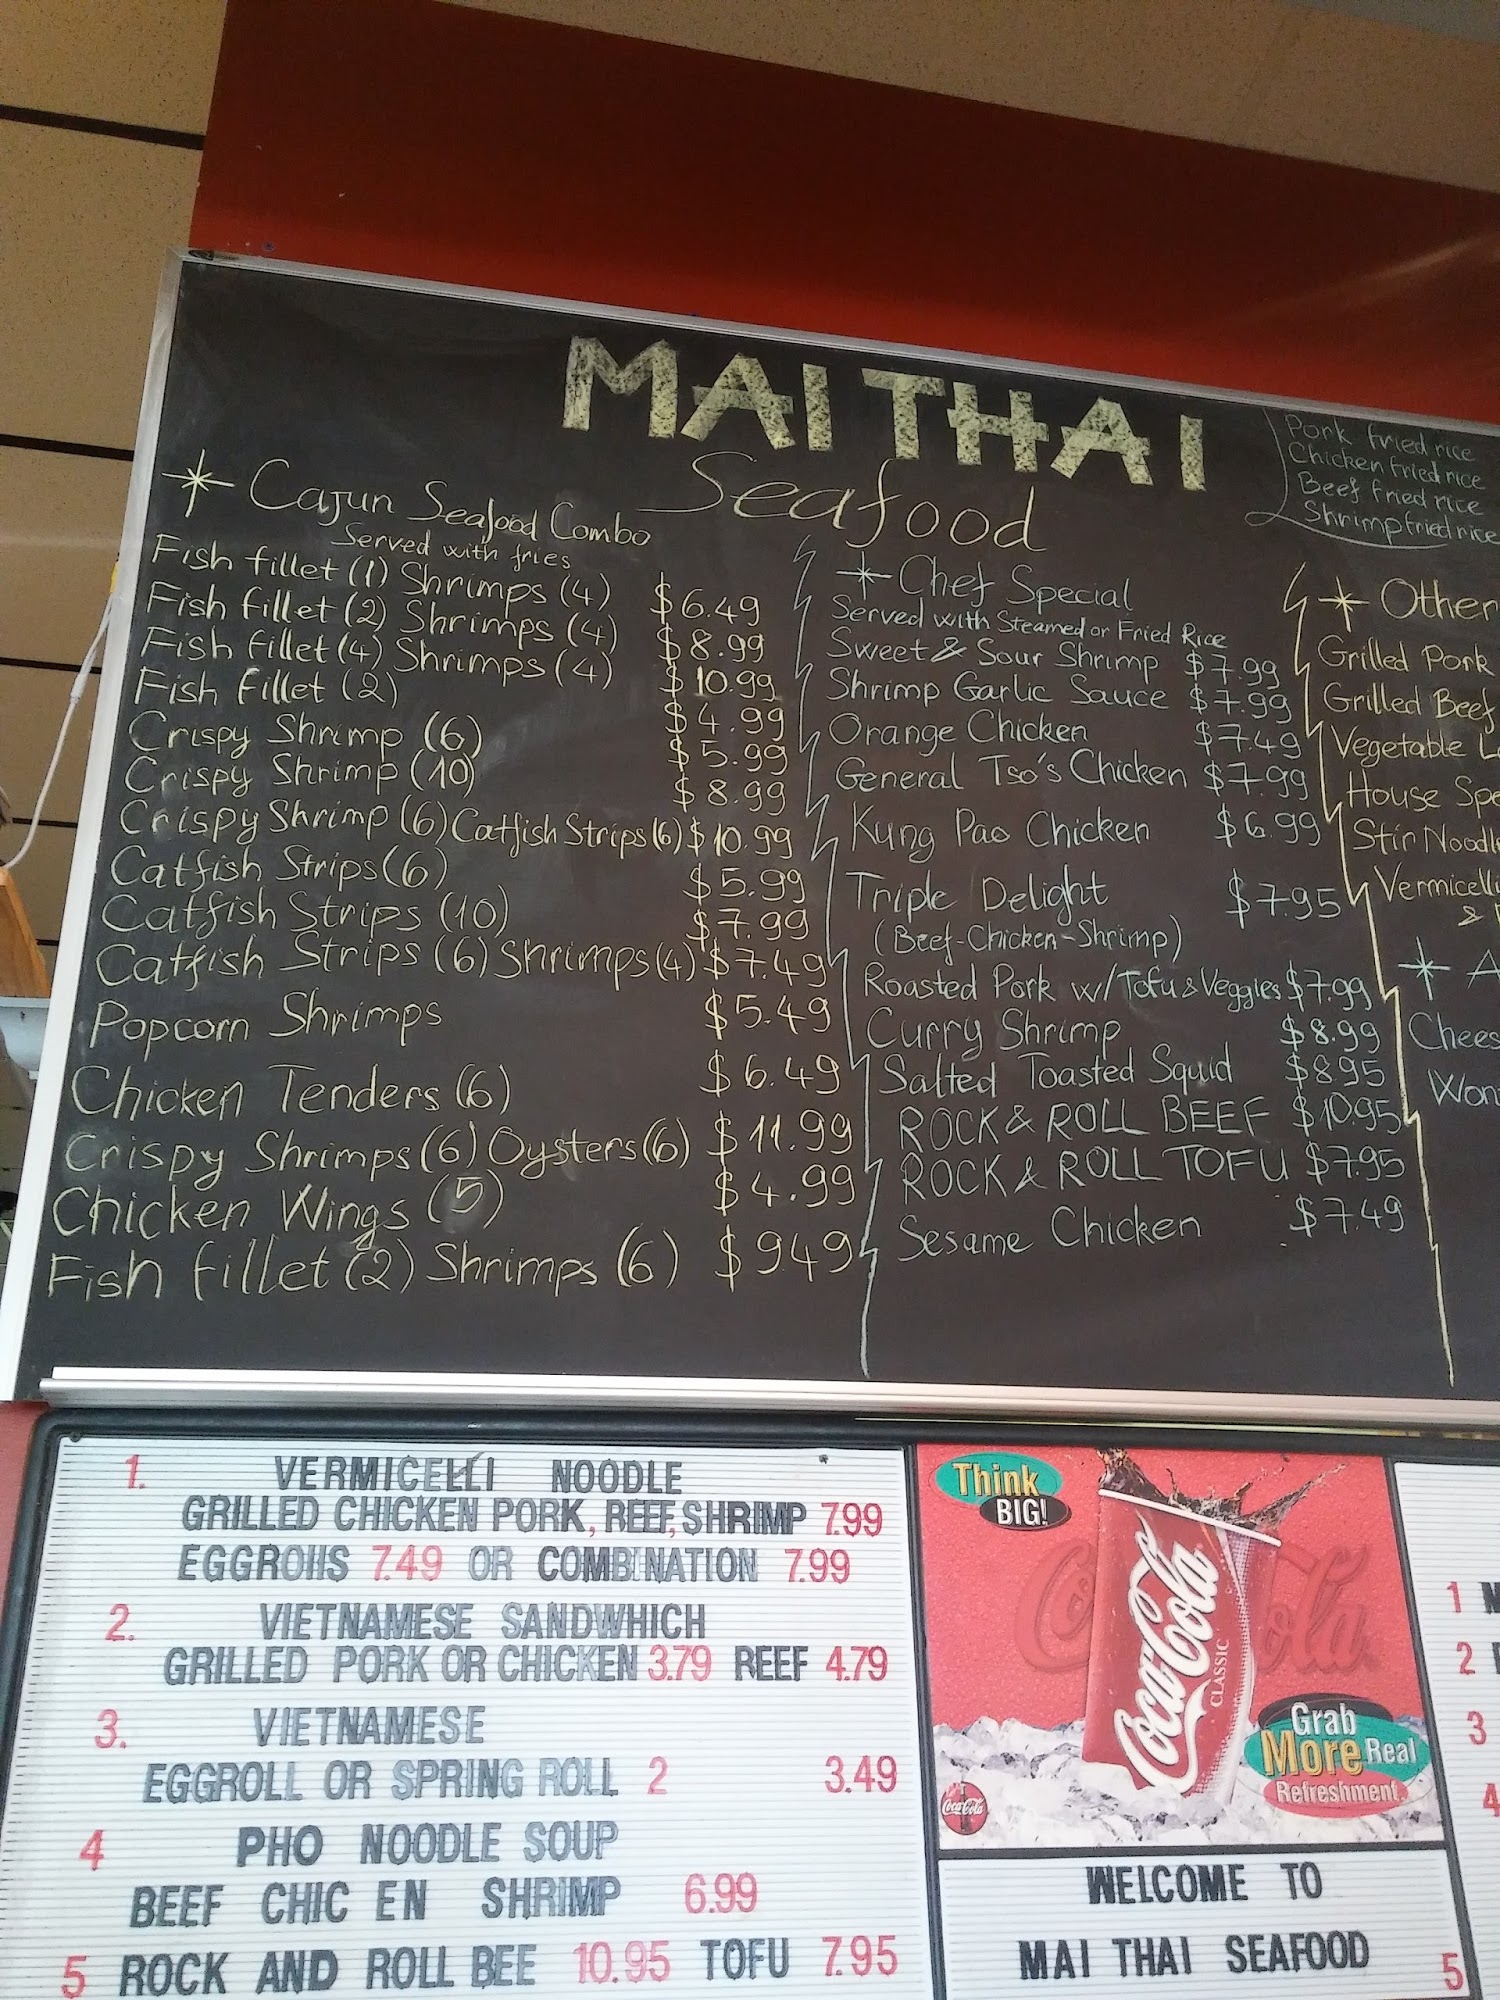 MAI THAI
Seafood
Cajun Seafood Combo
Served with fries
Fish fillet (1) Shrimps (4) $6.49
Fish fillet (2) Shrimps (4) $8.99
Fish fillet (4) Shrimps (4) $10.99
Fish fillet (2) $4.99
Crispy Shrimp (6) $5.99
Crispy Shrimp (10) $8.99
Crispy Shrimp (6) Catfish Strips (6) $10.99
Catfish Strips (6) $5.99
Catfish Strips (10) $7.99
Catfish Strips (6) Shrimps (4) $7.49
Popcorn Shrimps $5.49
Chicken Tenders (6) $6.49
Crispy Shrimps (6) Oysters (6) $11.99
Chicken Wings (5) $4.99
Fish fillet (2) Shrimps (6) $949
Chef Special
Served with Steamed or Fried Rice
Sweet & Sour Shrimp $7.99
Shrimp Garlic Sauce $7.99
Orange Chicken $7.49
General Tso's Chicken $7.99
Kung Pao Chicken $6.99
Triple Delight $7.95
(Beef-Chicken-Shrimp)
Roasted Pork w/Tofu & Veggies $7.99
Curry Shrimp $8.99
Salted Toasted Squid $8.95
ROCK & ROLL BEEF $10.95
ROCK & ROLL TOFU $7.95
Sesame Chicken $7.49
Pork fried rice
Chicken fried rice
Beef fried rice
Shrimp fried rice
Other
Grilled Pork
Grilled Beef
Vegetable L
House Spe
Stir Noodl
Vermicelli
&
A
Chees
Won
1. VERMICELLI NOODLE
GRILLED CHICKEN PORK, BEEF, SHRIMP 7.99
EGGROllS 7.49 OR COMBINATION 7.99
2. VIETNAMESE SANDWHICH
GRILLED PORK OR CHICKEN 3.79 BEEF 4.79
3. VIETNAMESE
EGGROLL OR SPRING ROLL 2 3.49
4 PHO NOODLE SOUP
BEEF CHIC EN SHRIMP 6.99
5 ROCK AND ROLL BEE 10.95 TOFU 7.95
Think
BIG!
Coca-Cola
CLASSIC
Grab
More Real
Refreshment.
Coca-Cola
WELCOME TO
MAI THAI SEAFOOD
1
2
3
4
5